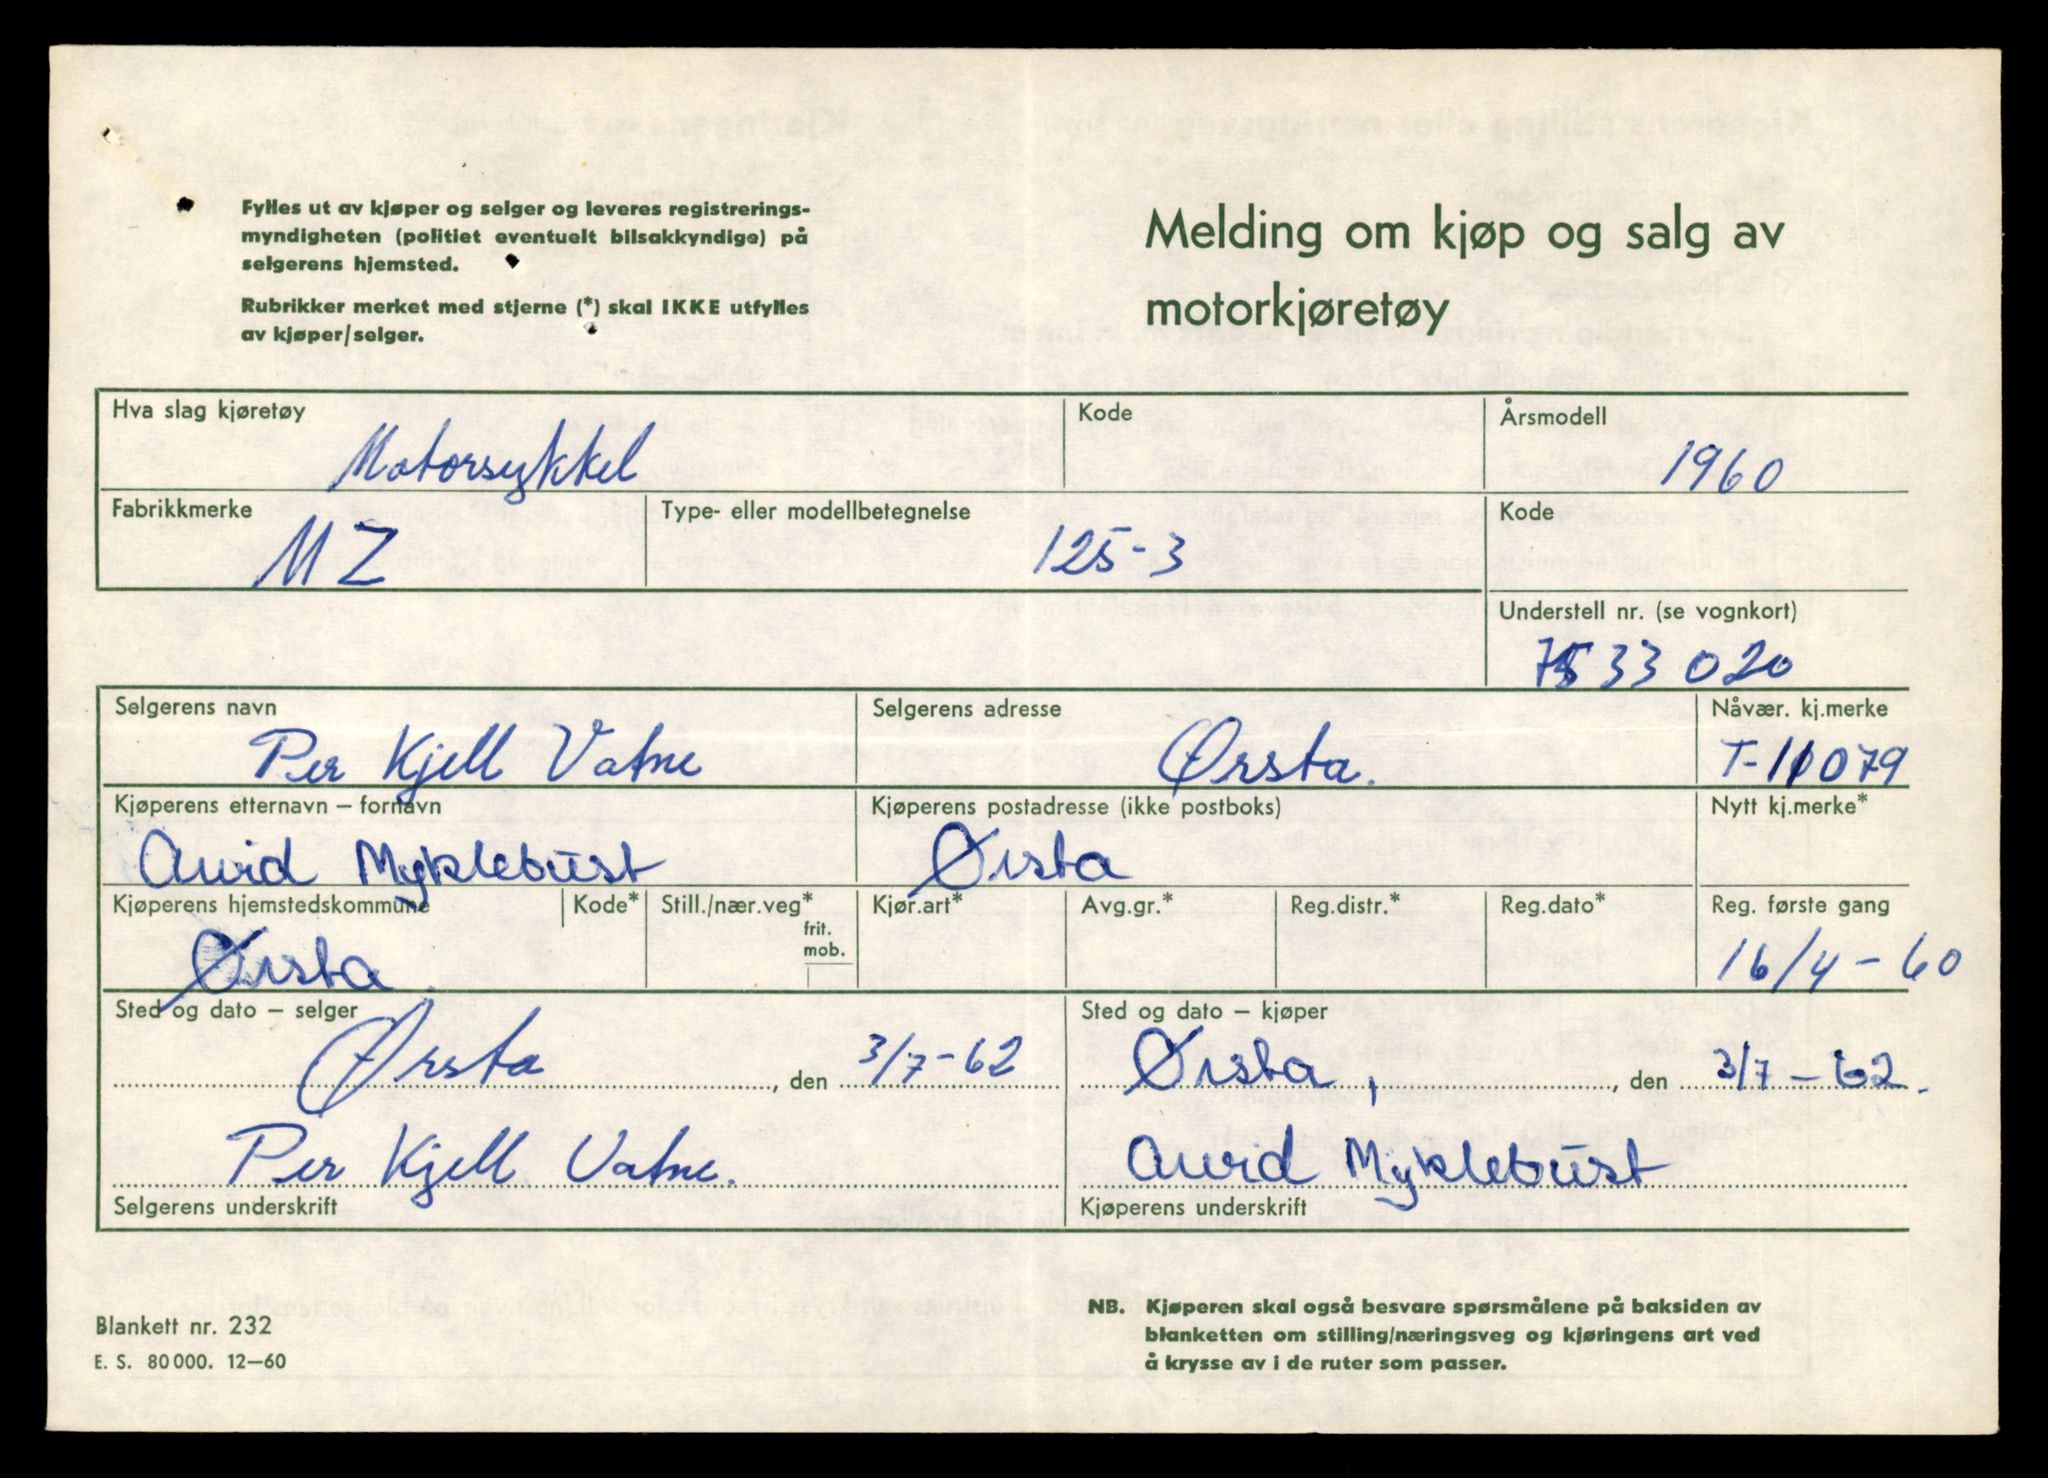 Fylles ut av kjøper og selger og leveres registrerings-
myndigheten (politiet eventuelt bilsakkyndige) på
selgerens hjemsted.
Rubrikker merket med stjerne (*) skal IKKE utfylles
av kjøper/selger.
Melding om kjøp og salg av
motorkjøretøy
Hva slag kjøretøy
Motorsykkel
Kode
Årsmodell
1960
Fabrikkmerke
MZ
Type- eller modellbetegnelse
125-3
Kode
Understell nr. (se vognkort)
7533020
Selgerens navn
Per Kjell Vatne
Selgerens adresse
Ørsta.
Nåvær. kj.merke
T-11079
Kjøperens etternavn – fornavn
Arvid Myklebust
Kjøperens postadresse (ikke postboks)
Ørsta
Nytt kj.merke*
Kjøperens hjemstedskommune
Ørsta
Kode*
Still./nær.veg*
frit.
mob.
Kjør.art*
Avg.gr.*
Reg.distr.*
Reg.dato*
Reg. første gang
16/4-60
Sted og dato – selger
Ørsta, den 3/7-62
Per Kjell Vatne.
Selgerens underskrift
Sted og dato – kjøper
Ørsta, , den 3/7-62.
Arvid Myklebust
Kjøperens underskrift
Blankett nr. 232
E. S. 80000. 12–60
NB. Kjøperen skal også besvare spørsmålene på baksiden av
blanketten om stilling/næringsveg og kjøringens art ved
å krysse av i de ruter som passer.